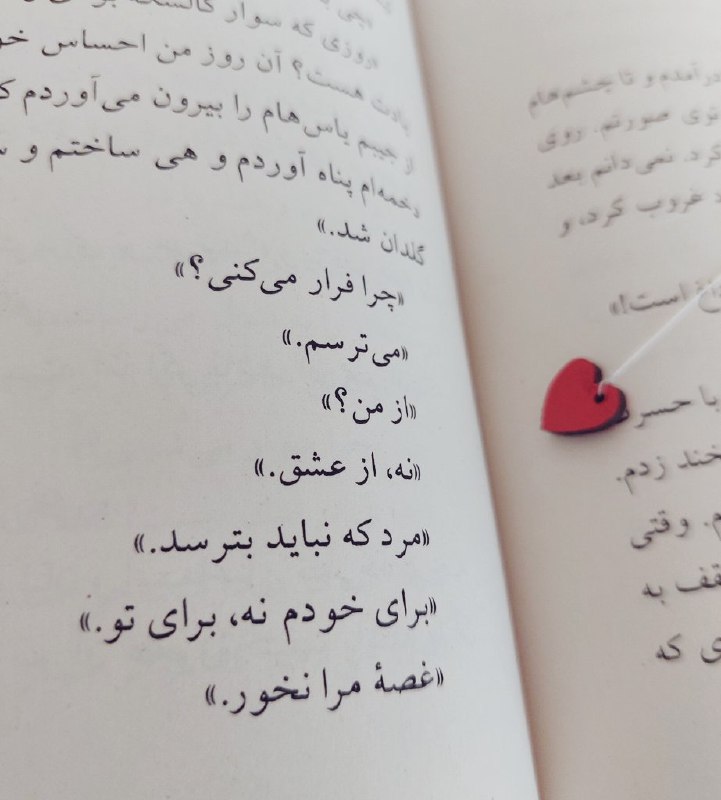 «روزی که سوار کالسکه
یادت هست؟ آن روز من احساس
از جیبم یاس‌هام را بیرون می‌آوردم
زخمه‌ام پناه آوردم و هی ساختم و
گلدان شد.»
«چرا فرار می‌کنی؟»
«می‌ترسم.»
«از من؟»
«نه، از عشق.»
«مرد که نباید بترسد.»
«برای خودم نه، برای تو.»
«غصهٔ مرا نخور.»
درآمدم و تا چشم‌هام
توی صورتم. روی
کرد. نمی‌دانم بعد
غروب کرد، و
است!»
با حسرت
خند زدم.
وقتی
به
که